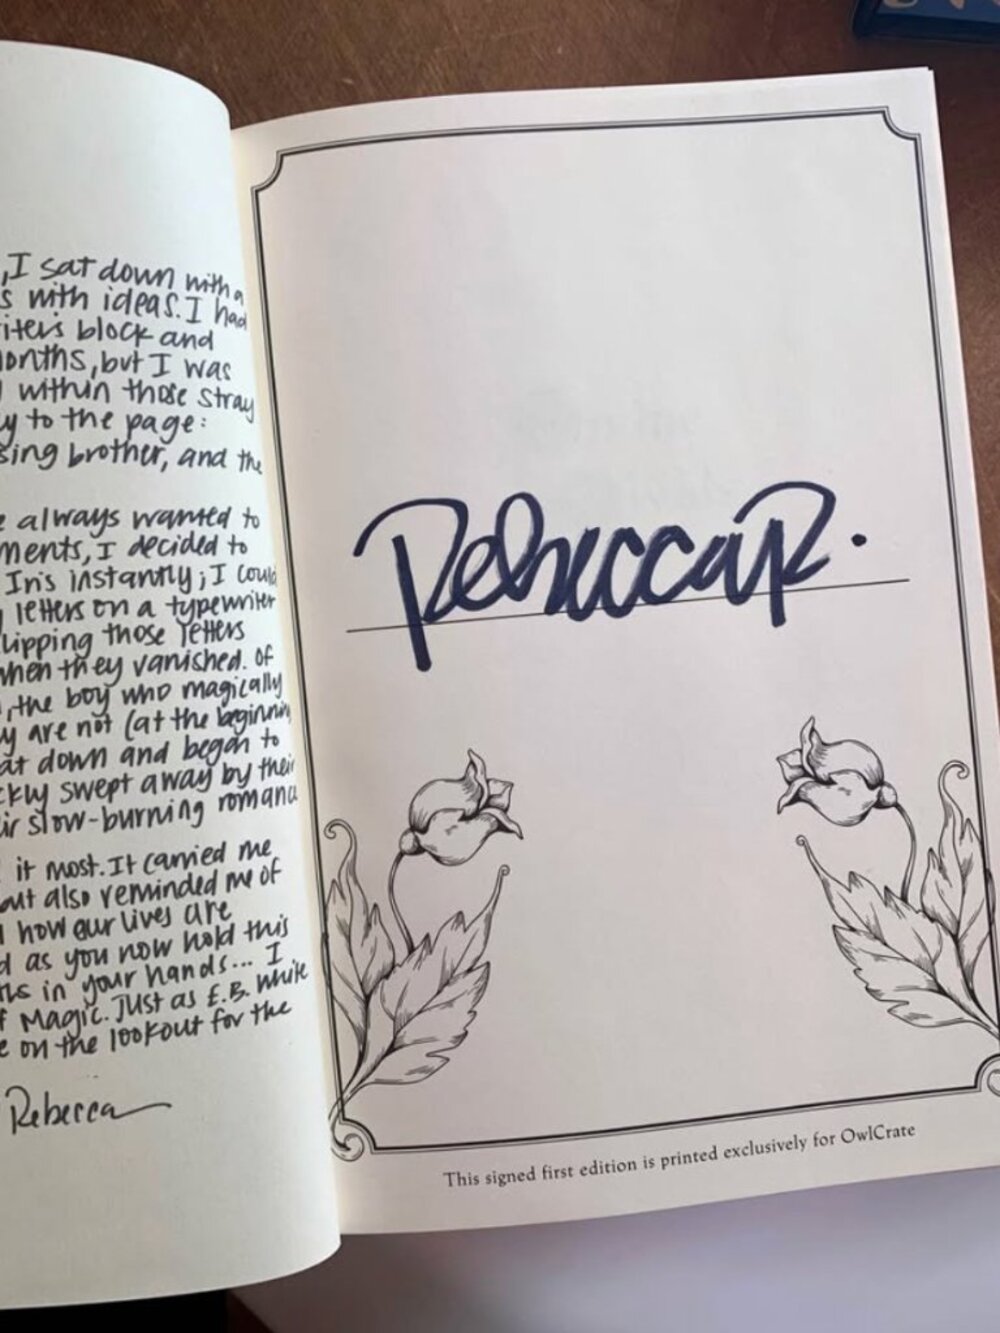 , I sat down with a
s with ideas. I had
iters block and
onths, but I was
within those stray
y to the page:
sing brother, and the
e always wanted to
ments, I decided to
Iris instantly; I could
letters on a typewriter
lipping those letters
when they vanished. Of
, the boy who magically
y are not (at the beginnin
at down and began to
ckly swept away by their
ir slow-burning romance
it most. It carried me
but also reminded me of
how our lives are
d as you now hold this
in your hands... I
f Magic. Just as E.B. White
e on the lookout for the
Rebecca
Rebecca R.
This signed first edition is printed exclusively for OwlCrate